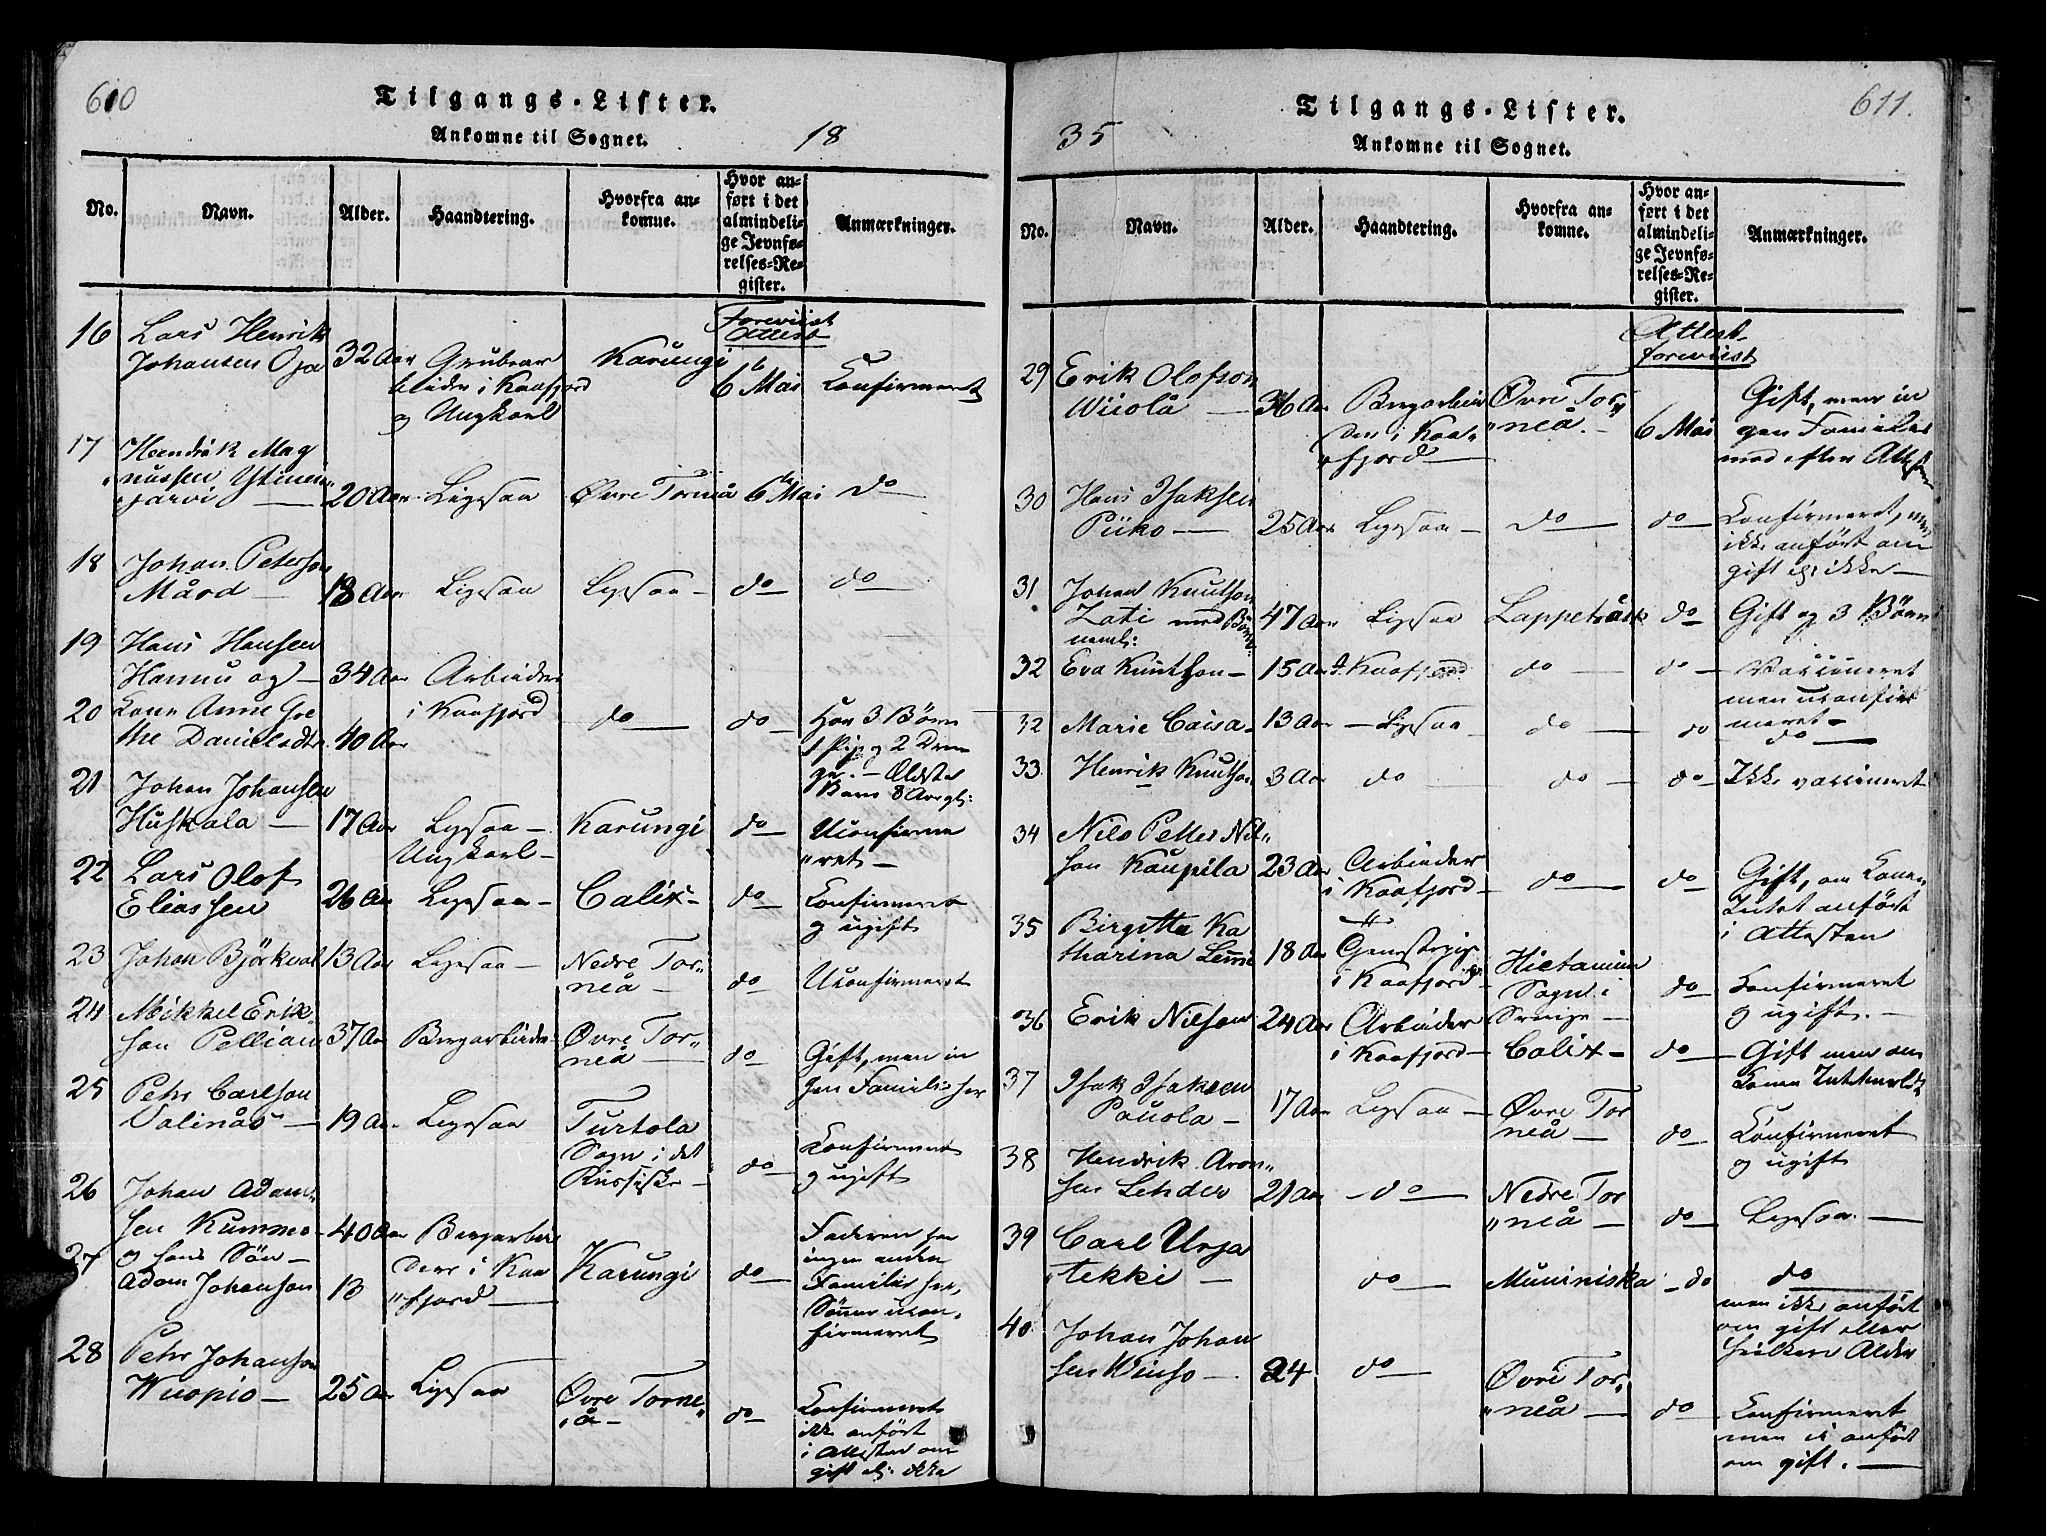 610
Tilgangs-Lister.
Ankomne til Sognet.
18
No.
Navn.
Alder.
Haandtering.
Hvorfra ankomne.
Hvor anført i det almindelige Jevnførelses-Register.
Anmærkninger.
Foreviist Attest
16 Lars Henrik
Johansen Oja 32 Aar Grubear Karungi 6 Mai Confirmeret
beider i Kaafjord
og Ungkarl
17 Hendrik Mag
nussen Ylinen
jarvi 20 Aar Ligesaa Øvre Torneå 6 Mai do
18 Johan Peterson
Mård 18 Aar Ligesaa Ligesaa do do
19 Hans Hansen
Hannu og 34 Aar Arbeider
i Kaafjord
20 Kone Anne Gre
the Danielsdtr 40 Aar do do Har 3 Børn
1 Pige og 2 Dren
ge. Ældste
Barn 8 Aar gl:
21 Johan Johansen
Huskala 17 Aar Ligesaa Karungi do Uconfirme
Ungkarl ret
22 Lars Olof
Eliassen 26 Aar Ligesaa Calix do Confirmeret
og ugift
23 Johan Björkval 13 Aar Ligesaa Nedre Tor
neå do Uconfirmeret
24 Mikkel Erik
son Pellian 37 Aar Bergarbeider Øvre Tor
neå do Gift, men in
gen Familie her
25 Petr Carlson
Valinås 19 Aar Ligesaa Turtola
Sogn i det
Russiske do Confirmeret
og ugift
26 Johan Adam
sen Kummo 40 Aar Bergarbei
27 og hans Søn dere i Kaa Karungi do
Adam Johanson 13 fjord
Faderen har
ingen anden
Familie her,
Sønnen ucon
firmeret
28 Petr Johanson
Wuopio 25 Aar Ligesaa Øvre Torne
å do Confirmeret
ikke anført
i Attesten om
gift elr ikke
611.
Tilgangs-Lister.
Ankomne til Sognet.
35
No.
Navn.
Alder.
Haandtering.
Hvorfra ankomne.
Hvor anført i det almindelige Jevnførelses-Register.
Anmærkninger.
Attest foreviist
29 Erik Olofson
Wiiola 36 Aar Bergarbei Øvre Tor
der i Kaa neå. 6 Mai
fjord
Gift, men in
gen Familie
med efter Attesten
30 Hans Isaksen
Piiko 25 Aar Ligesaa do do Confirmeret, men
ikke anført om
gift elr ikke
31 Johan Knutson
Zati med Børn 47 Aar Ligesaa Lappeträsk do Gift og 3 Børn
neml:
32 Eva Knutson 15 Aar Kaafjord do do Vaccineret
men uconfir
meret
32 Marie Caisa 13 Aar Ligesaa do do do
33 Henrik Knutson 3 Aar do do do Ikke vaccineret
34 Nils Petter Nil
son Kaupila 23 Aar Arbeider
i Kaafjord do do Gift, om Konen
Intet anført
i Attesten
35 Birgitta Ka
tharina 18 Aar
i Kaafjord Hietaniemi
Sogn i
Sverige do Confirmeret
og ugift.
36 Erik Nilson 24 Aar Arbeider
i Kaafjord Calix do Gift men om
Konen
37 Isak Isaksen
Pauola 17 Aar Ligesaa Øvre Tor
neå do Confirmeret
og ugift
38 Hendrik Aron
sen Lehder 21 Aar do Nedre Tor
neå do Ligesaa
39 Carl Urja
tekki do Muoniniska do do
men ikke anført
om gift eller
hvilken Alder
40 Johan Johan
sen Winso 24 do Øvre Tor
neå do Confirmeret
men ei anført
om gift.